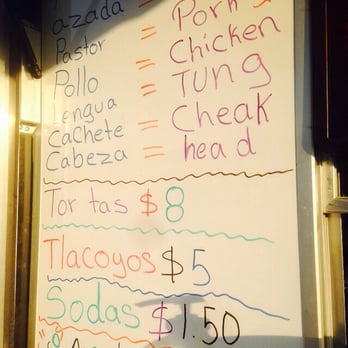 azada =
Pastor = Pork
Pollo = Chicken
Lengua = Tung
Cachete = Cheak
Cabeza = head
Tortas $8
Tlacoyos $5
Sodas $1.50